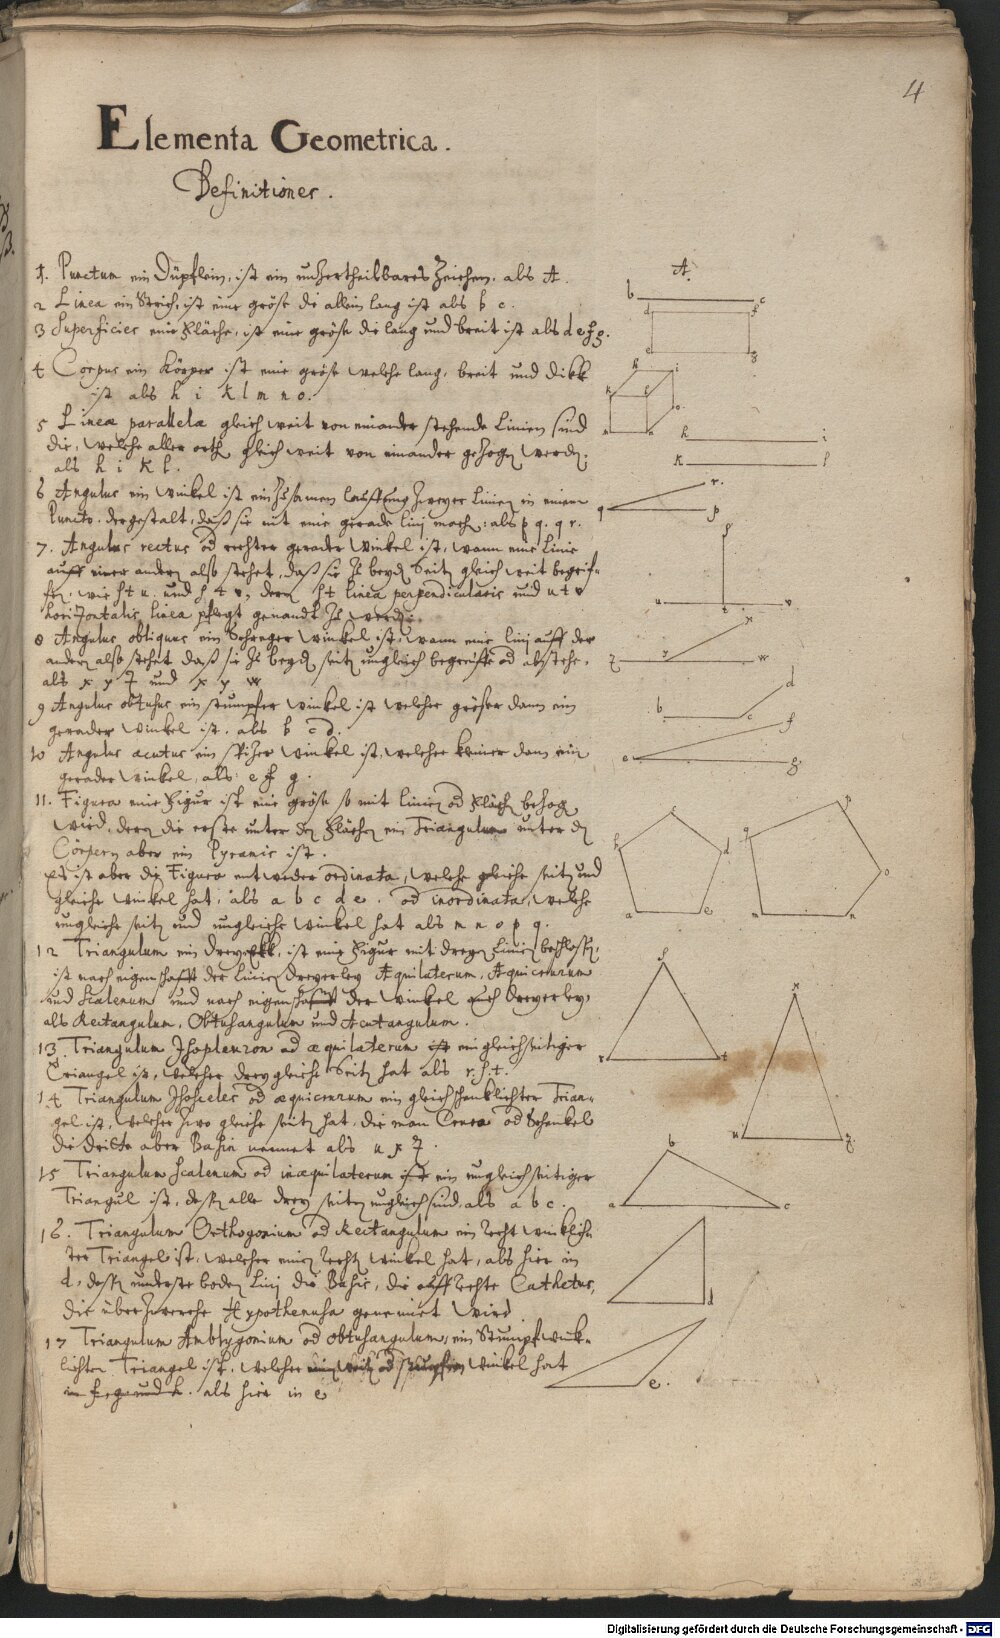 4
Elementa Geometrica.
Definitiones.
1. Punctum ein Düpflein, ist ein unzertheilbares Zeichen. als A.
2 Linea ein Strich, ist eine größe die allein lang ist als b c.
3 Superficies eine Fläche, ist eine größe die lang und breit ist als d e f g.
4 Corpus ein Körper ist eine größe welche lang, breit und dikk
ist als h i k l m n o.
5 Lineæ parallelæ gleich weit von einander stehende Linien sind
die, welche aller orth gleich weit von einander gezogen werden.
als h i k l.
6 Angulus ein Winkel ist ein zusamen lauffung zweyer Linien in einem
Puncto. dergestalt, daß sie nit eine gerade linj machen: als p q. q r.
7. Angulus rectus od rechter gerader Winkel ist, wann eine Linie
auff einer andern also stehet, daß sie zu beyden Seiten gleich weit begrif-
fen. wie s t u. und s t v, denn s t linea perpendicularis und u t v
horizontalis linea pflegt genandt zu werden.
8 Angulus obliquus ein Schreger Winkel ist, wann eine linj auff der
andern also stehet daß sie zu beyden seiten ungleich begreiffe od abstehe.
als x y z und x y w
9 Angulus obtusus ein stumpfer Winkel ist welcher größer dann ein
gerader Winkel ist. als b c d.
10 Angulus acutus ein spitzer Winkel ist, welcher kleiner dann ein
gerader Winkel, als e f g.
11. Figura eine Figur ist eine größe so mit linien od Flächen bezogen
wird, deren die erste unter den Flächen ein Triangulum unter den
Cörpern aber ein Pyramis ist.
Es ist aber die Figura entweder ordinata, welche gleiche seiten und
gleiche Winkel hat, als a b c d e. od inordinata, welche
ungleiche seiten und ungleiche Winkel hat als m n o p q.
12 Triangulum ein dreyekk, ist eine Figur mit dreyen Linien beschlossen,
ist nach eigenschafft der Linien dreyerley Æquilaterum, Æquicrurum
und Scalenum und nach eigenschafft der Winkel auch dreyerley
als Rectangulum, Obtusangulum und Acutangulum.
13. Triangulum Isopleuron od æquilaterum ist ein gleichseitiger
Triangel ist, welcher drey gleiche Seiten hat als r. s. t.
14 Triangulum Isosceles od æquicrurum ein gleichschenklichter Trian-
gel ist, welcher zwo gleiche seiten hat, die man Crura od Schenkel
die dritte aber Basin nennet als u x z.
15 Triangulum scalenum od inæquilaterum ist ein ungleichseitiger
Triangul ist, dessen alle drey seiten ungleich sind, als a b c.
16. Triangulum Orthogonium od Rectangulum ein recht winklich-
ter Triangel ist, welcher einen rechten Winkel hat, als hier in
d, dessen underste boden Linj die Basis, die auffrechte Cathetus,
die überzwerche Hypothenusa genennet wird
17 Triangulum Amblygonium od obtusangulum, ein Stumpfwink-
lichter Triangel ist. welcher einen weiten od stumpfen winkel hat
als hier in e
A.
b c
d f
e g
k i
h l
o
m n
h i
k l
r.
q p
s
u t v
x
z y w
d
b c
f
e g
c
b d
a e
p
q o
m n
s
r t
x
u z
b
a c
d
e.
Digitalisierung gefördert durch die Deutsche Forschungsgemeinschaft - DFG